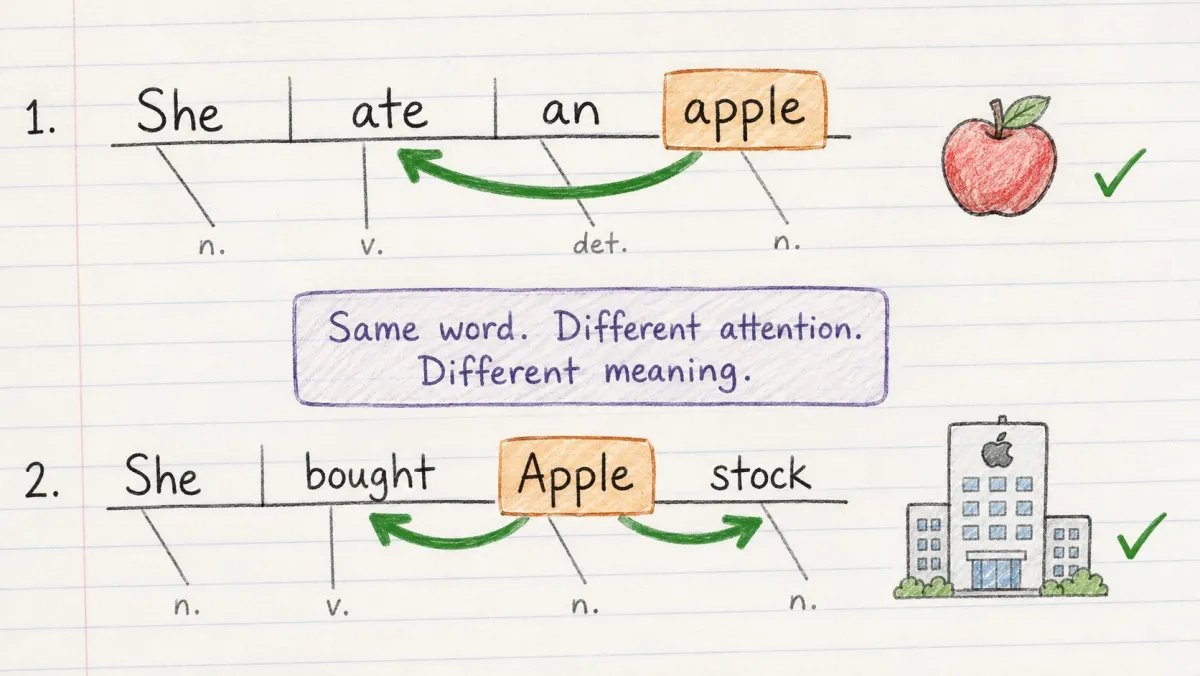 1. She ate an apple
n. v. det. n.
Same word. Different attention.
Different meaning.
2. She bought Apple stock
n. v. n. n.